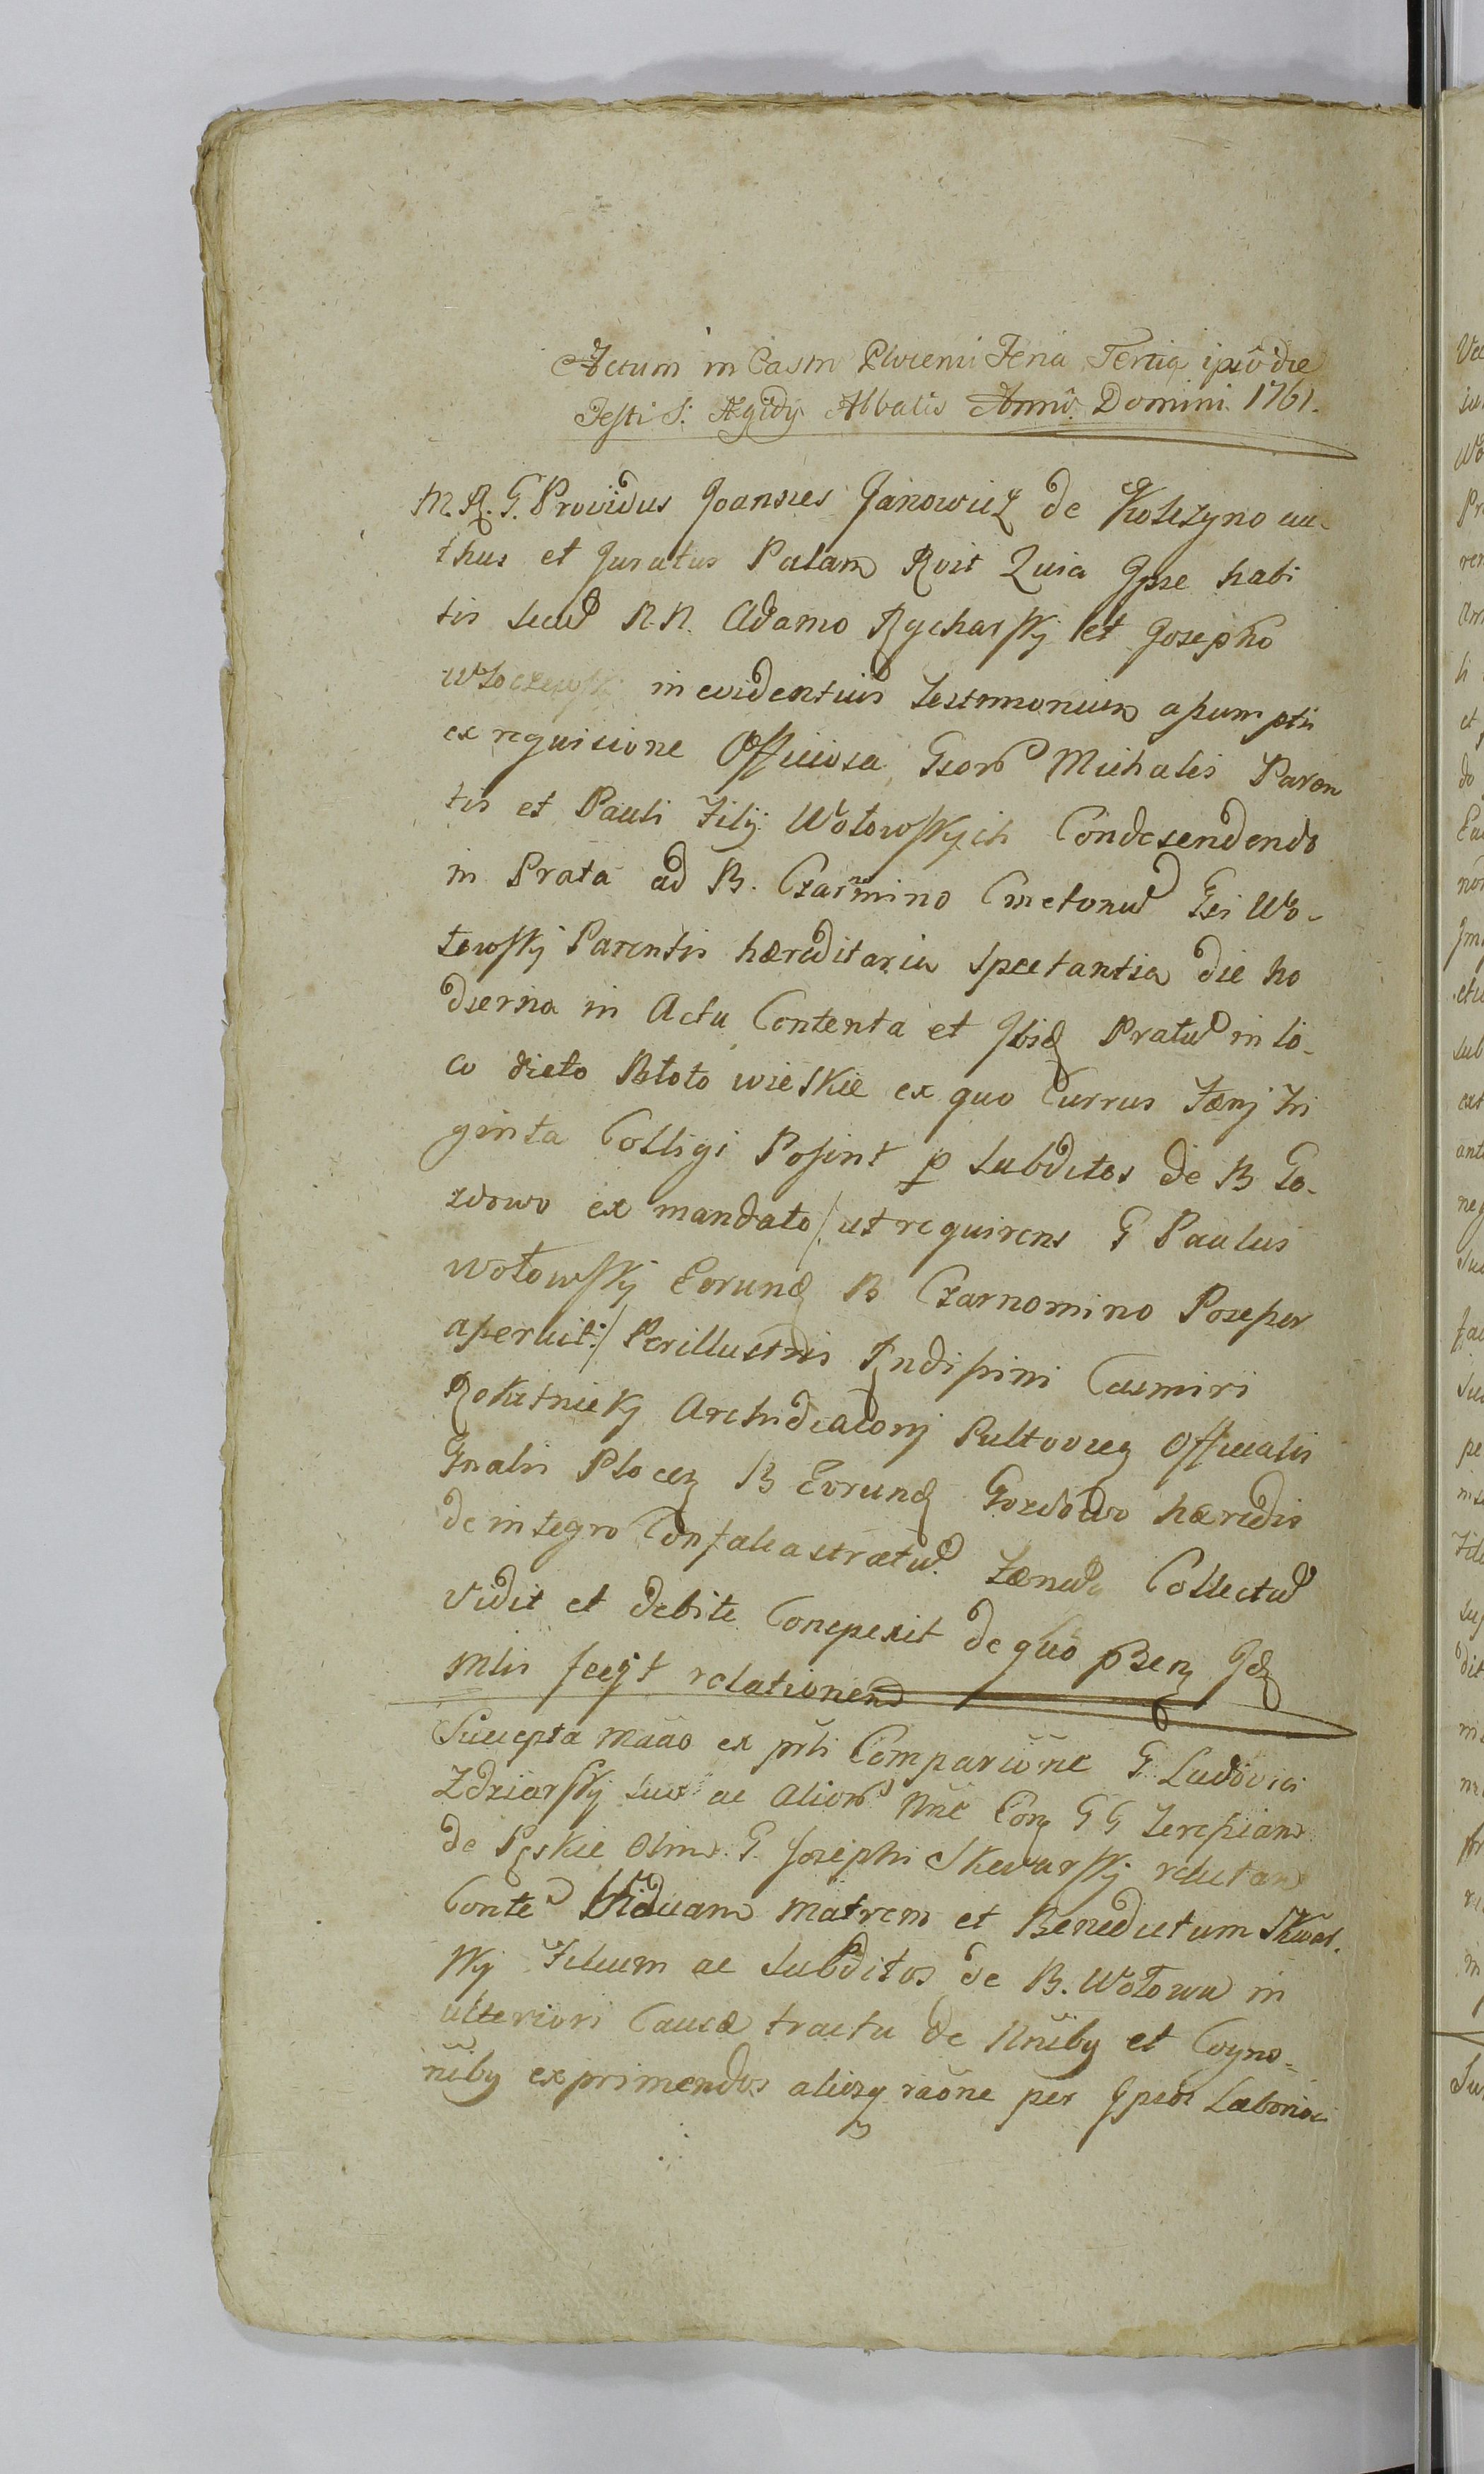 Actum in Castro Plocensi Feria Tertia ipso die
Festi S: Ægidij Abbatis Anno Domini 1761.
M. R. G. Providus Joannes Janowicz de Kolczyno au-
thus et Juratus Palam Rcit Quia Ipse habi
tis secu N.N. Adamo Rycharsky et Josepho
Włoczewski in evidentius Testimonium assumptis
ex requisicione Officiosa Gsor Michalis Paren
tis et Pauli Filij Wołowskych Condesendendo
in Prata ad B. Czarmino Cmetonu Gsi Wo-
łowskj Parentis hæreditaria spectantia die ho
dierna in Actu Contenta et Ibid Pratu in lo-
co dicto Błoto wieskie ex quo Currus Fænj tri
ginta Colligi Possint p Subditos de B Go-
zdowo ex mandato /: ut requirens G Paulus
wołowskj Eorund B Czarnomino Possesser
aperuit:/ Perillustris Rndissimi Casmiri
Rokitnickj Archidiaconj Pultovieng Officialis
Gnalis Plocen B Eorund Gozdowo hæredis
de integro Confalcastratu Fænu Collectu
vidit et debite Conspexit de quo psen Id
Mlis fecit relationem
Suscepta Mano ex prti Comparicione G Ludovici
Zdziarskj suo ac Alior Nne Eor G G
de Olim G. Josephi Skwarskj relictam
Conte Viduam Matrem et Benedictum Skwar-
skj Filium ac Subditos de B. Wołowa in
ulteriori Causæ tractu de Nniby et Cogno-
niby exprimendos alios raone per Ipsos Laborios